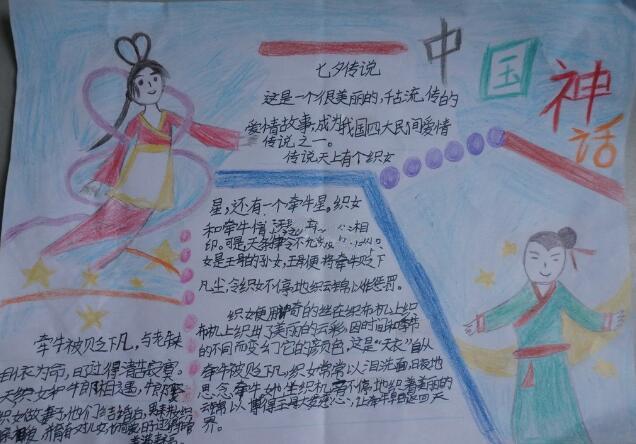 中国神话
七夕传说
这是一个很美丽的,千古流传的
爱情故事,成为我国四大民间爱情
传说之一。
传说天上有个织女
星,还有一个牵牛星。织女
和牵牛情 相
印。可是,天条律令不允
女是王母的孙女,王母便将牵牛贬下
凡尘,令织女不停地织云锦以作惩罚。
织女便用神奇的丝在织布机上织
布机上织出了美丽的云彩,因时间和季节
的不同而变幻它的颜色,这是“天衣”自从
牵牛被贬之,织女常常以泪洗面,日夜地
思念牵牛,她坐织机不停地织着美丽的
云锦以博得王母大发慈心,让牵牛早日返回天
界。
牵牛被贬之下凡,与老
相依为命,日过得清苦寂寞。
天织女和牛郎相遇,牛郎
织女做妻子,他们结